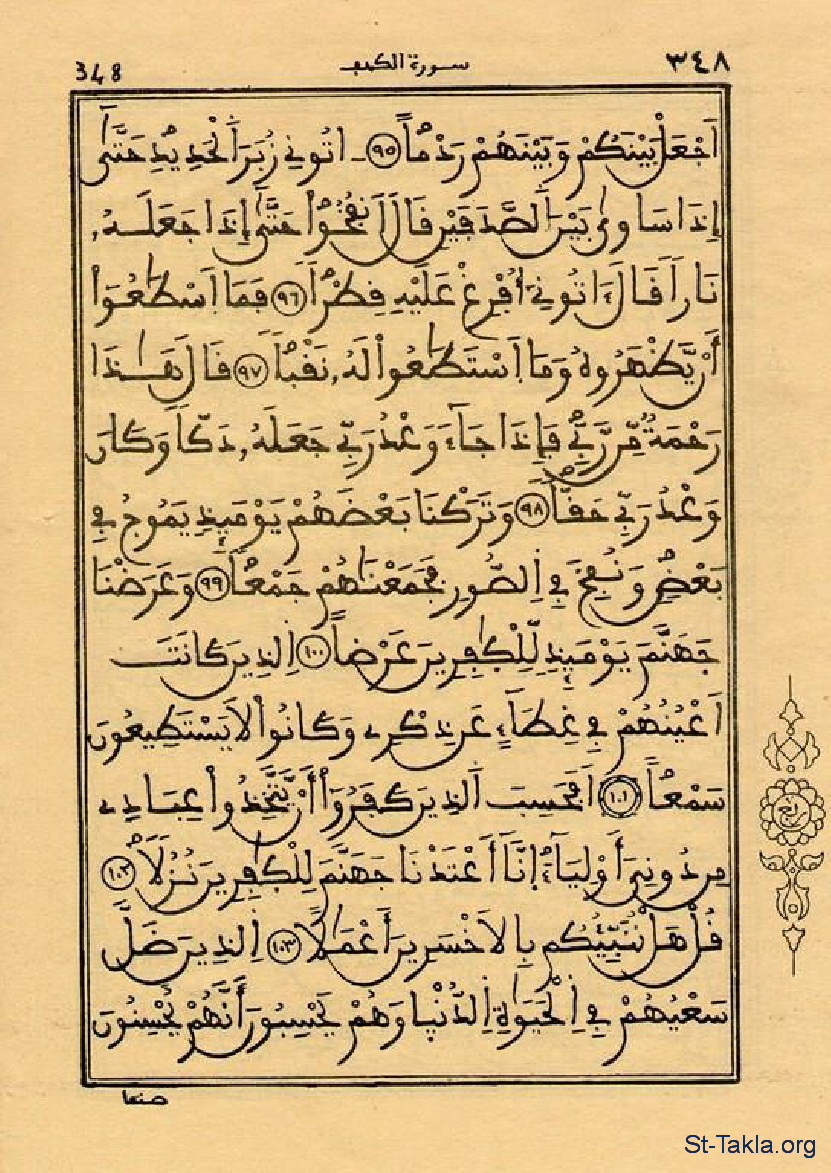 348 سورة الكهف ٣٤٨
اَجْعَلْ بَيْنَكُمْ وَبَيْنَهُمْ رَدْماًۖ ٩٥ ـ اتُونِے زُبَرَ اَ۬لْحَدِيدِ حَتَّىٰٓ
إِذَا سَاو۪ىٰ بَيْنَ اَ۬لصَّدَفَيْنِ قَالَ اَ۟نفُخُواْ حَتَّىٰٓ إِذَا جَعَلَهُۥ
نَاراٗ قَالَ ءَاتُونِےٓ أُفْرِغْ عَلَيْهِ قِطْراٗۖ ٩٦ فَمَا اَ۪سْطَٰعُوٓاْ
أَنْ يَّظْهَرُوهُ وَمَا اَ۪سْتَطَٰعُواْ لَهُۥ نَقْباٗۖ ٩٧ قَالَ هَٰذَا
رَحْمَةٞ مِّن رَّبِّےۖ فَإِذَا جَآءَ وَعْدُ رَبِّے جَعَلَهُۥ دَكّاٗ وَكَانَ
وَعْدُ رَبِّے حَقّاٗۖ ٩٨ وَتَرَكْنَا بَعْضَهُمْ يَوْمَئِذٖ يَمُوجُ فِے
بَعْضٖ وَنُفِخَ فِے اِ۬لصُّورِ فَجَمَعْنَٰهُمْ جَمْعاٗ ٩٩ وَعَرَضْنَا
جَهَنَّمَ يَوْمَئِذٖ لِّلْكٰ۪فِرِينَ عَرْضاً ١٠٠ اِ۬لذِينَ كَانَتَ
اَعْيُنُهُمْ فِے غِطَآءٍ عَن ذِكْرِے وَكَانُواْ لَا يَسْتَطِيعُونَ
سَمْعاًۖ ١٠١ اَفَحَسِبَ اَ۬لذِينَ كَفَرُوٓاْ أَنْ يَّتَّخِذُواْ عِبَادِے
مِن دُونِيَ أَوْلِيَآءَۖ انَّآ أَعْتَدْنَا جَهَنَّمَ لِلْكٰ۪فِرِينَ نُزُلاٗۖ ١٠٢
قُلْ هَلْ نُنَبِّئُكُم بِالَاخْسَرِينَ أَعْمَٰلاًۖ ١٠٣ اِ۬لذِينَ ضَلَّ
سَعْيُهُمْ فِے اِ۬لْحَيَوٰةِ اِ۬لدُّنْي۪ا وَهُمْ يَحْسِبُونَ أَنَّهُمْ يُحْسِنُونَ
صنعا
St-Takla.org